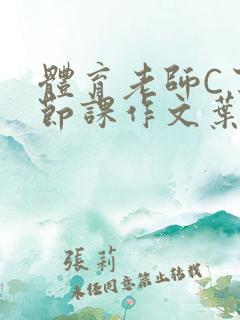 體育老師C了
節課作文葉
張莉
未經同意禁止轉載